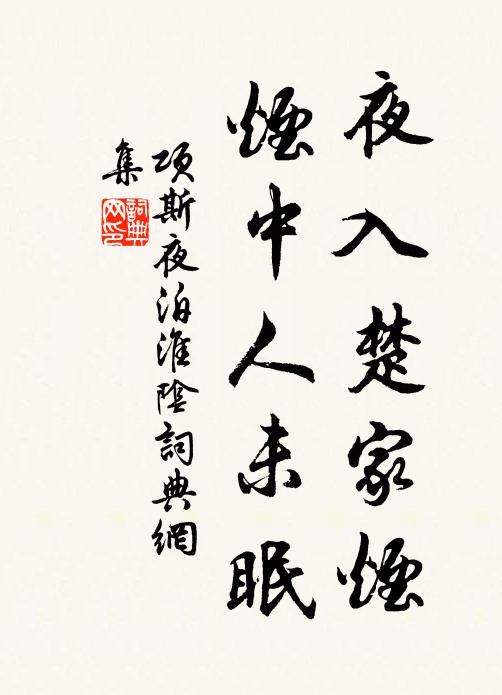 夜入楚家煙
煙中人未眠
項斯夜泊淮陰詞典網
集
詞典
网印